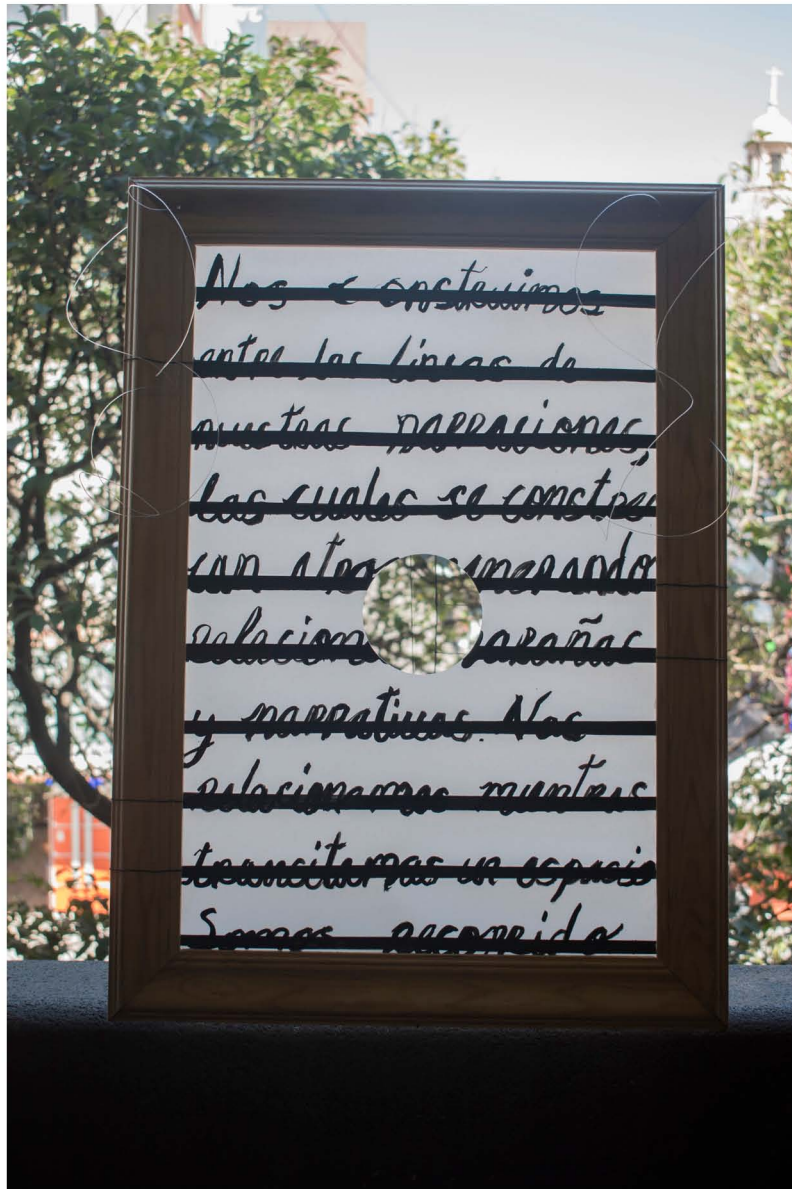 Nos construimos
entre las líneas de
nuestras narraciones,
las cuales se constru
con otra generando
relacion arañas
y narrativas. Nos
relacionamos mientras
transitamos un espacio
Somos recorrido